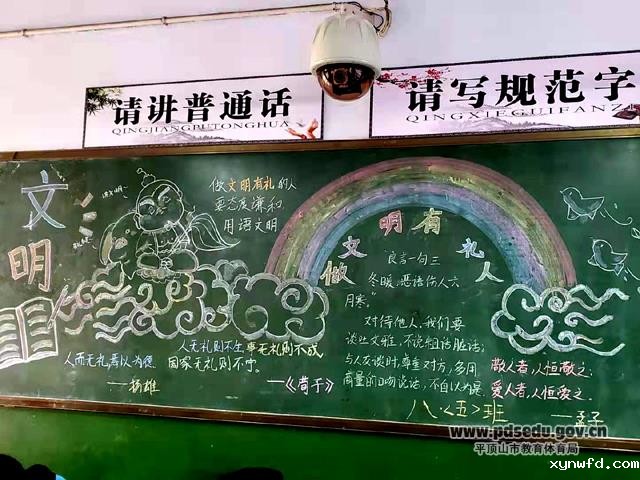 请讲普通话
QINGJIANGPUTONGHUA
请写规范字
QINGXIEGUIFANZ
文
明
做文明有礼的人
要态度谦和
用语文明
做文明有礼人
良言一句三
冬暖,恶语伤人六
月寒。”
对待他人,我们要
谈吐文雅,不说粗话脏话;
与人友谈时,尊重对方,多用
商量的口吻说话,不自以为是
人而无礼,焉以为德
——扬雄
人无礼则不生,事无礼则不成
国家无礼则不宁。
——《荀子》
敬人者,人恒敬之;
爱人者,人恒爱之。
——孟子
八·〈五〉班
www.pdsedu.gov.cn
平顶山市教育体育局
xynwfd.com